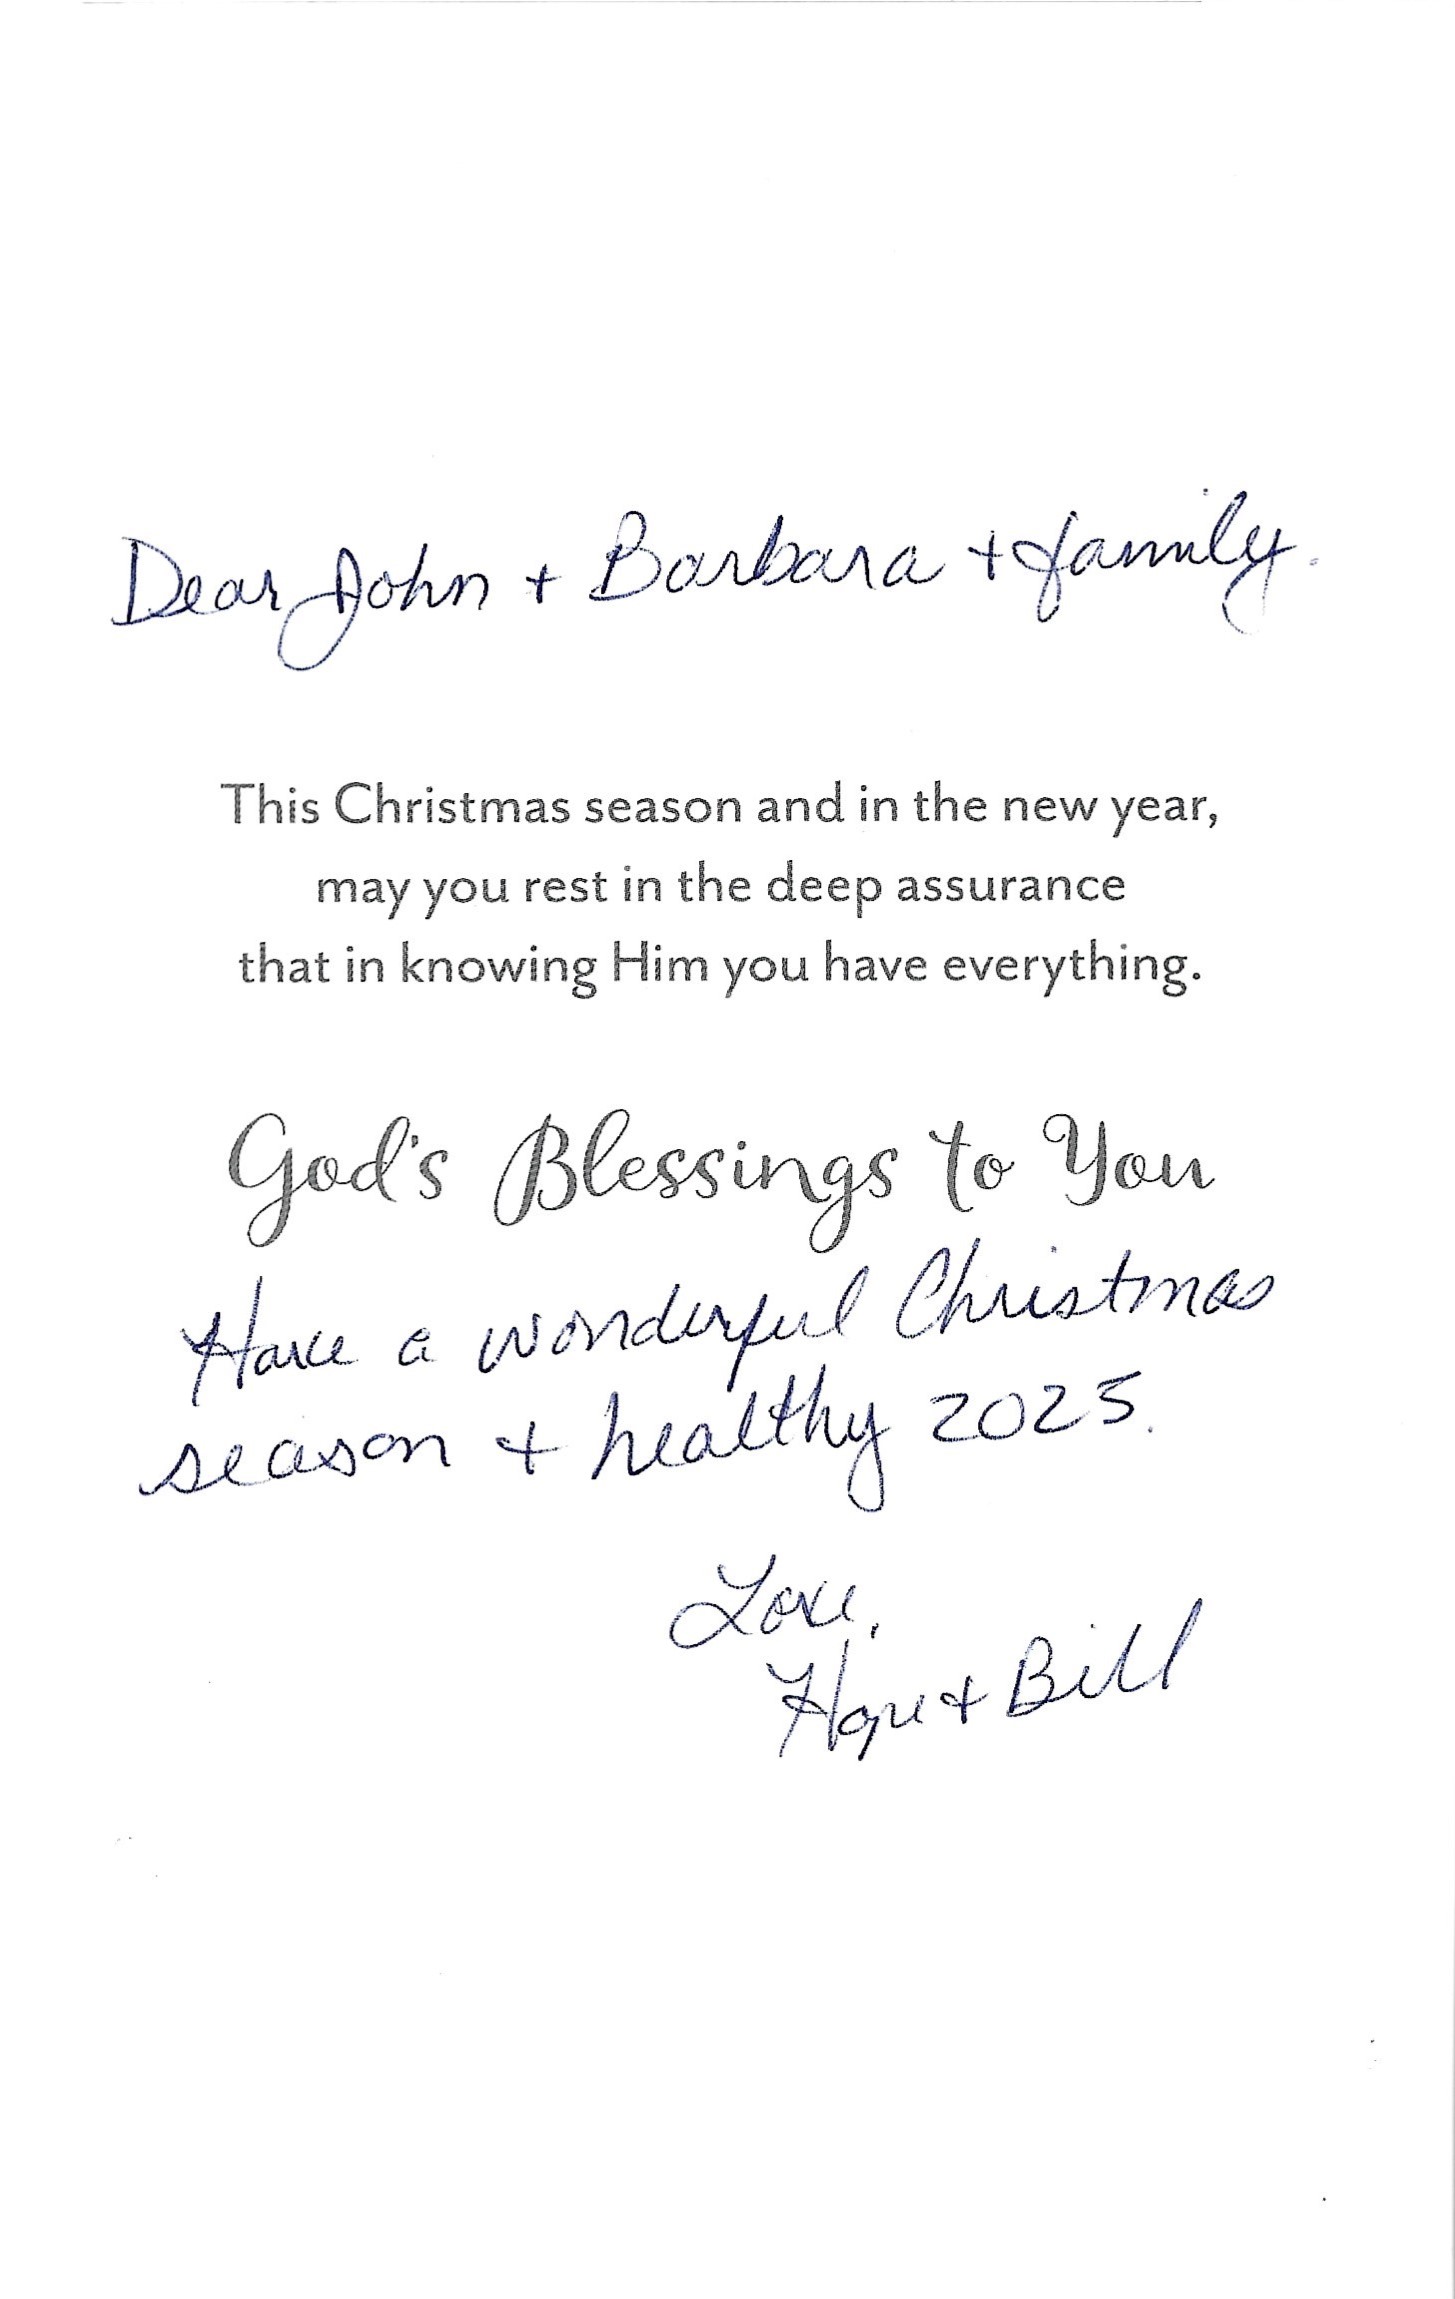 Dear John + Barbara + family.
This Christmas season and in the new year,
may you rest in the deep assurance
that in knowing Him you have everything.
God's Blessings to You
Have a wonderful Christmas
season + healthy 2025.
Love,
Hope + Bill